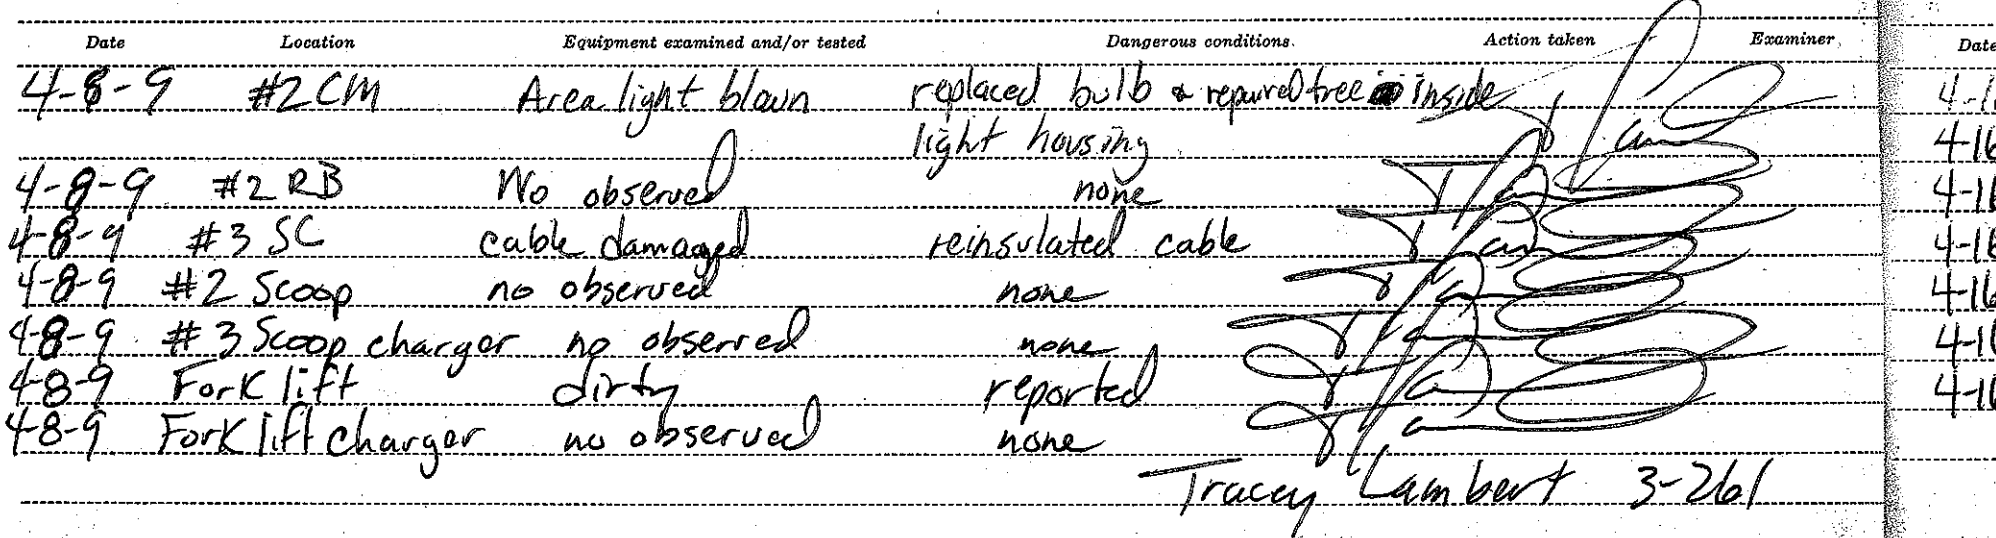 Date Location Equipment examined and/or tested Dangerous conditions Action taken Examiner Date
4-8-9 #2 CM Area light blown replaced bulb & repaired tree inside
light housing
4-8-9 #2 RB No observed none 4-16
4-8-9 #3 SC cable damaged reinsulated cable
4-8-9 #2 Scoop no observed none 4-16
4-8-9 #3 Scoop charger no observed none
4-8-9 Fork lift dirty reported
4-8-9 Fork lift charger no observed none
Tracey Lambert 3-261